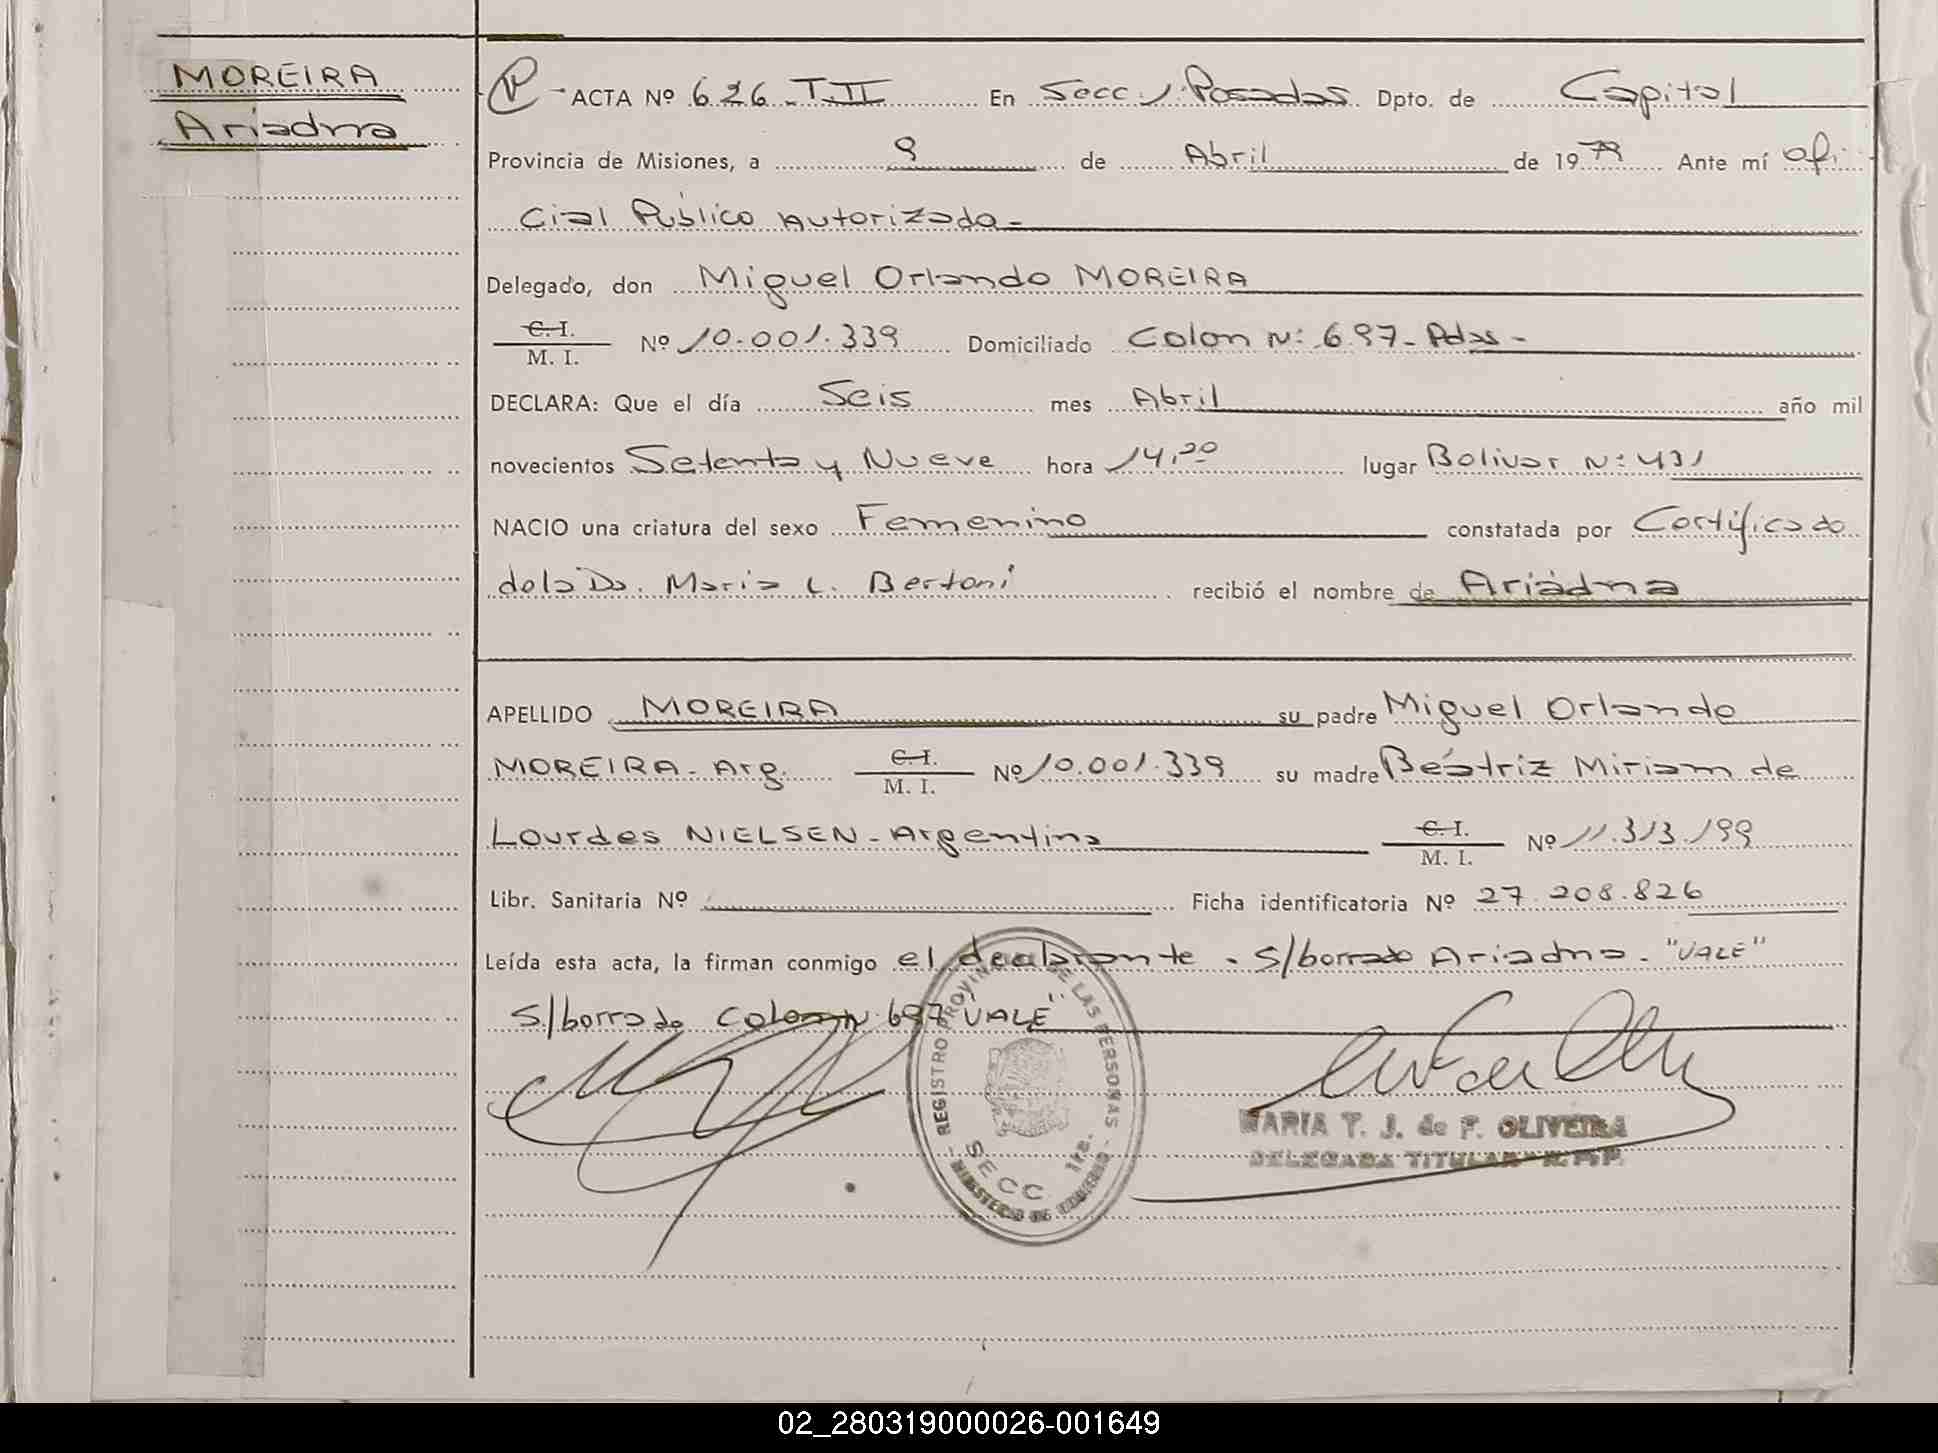 MOREIRA
Ariadna
ACTA Nº 626 - T. II En Secc. 1. Posadas Dpto. de Capital
Provincia de Misiones, a 9 de Abril de 1979 Ante mí ofi
cial Público Autorizado-
Delegado, don Miguel Orlando MOREIRA
C. I.
M. I. Nº 10.001.339 Domiciliado Colon N: 697- Pdas-
DECLARA: Que el día Seis mes Abril año mil
novecientos Setenta y Nueve hora 14,20 lugar Bolivar N: 431
NACIO una criatura del sexo Femenino constatada por Certificado
de la Da. Maria L. Bertoni recibió el nombre de Ariadna
APELLIDO MOREIRA su padre Miguel Orlando
MOREIRA- Arg. C. I. M. I. Nº 10.001.339 su madre Beatriz Miriam de
Lourdes NIELSEN- Argentina C. I. M. I. Nº 11.313.199
Libr. Sanitaria Nº Ficha identificatoria Nº 27.208.826
Leída esta acta, la firman conmigo el declarante - S/borrado Ariadna - "VALE"
S/borrado Colon N 697 "VALE"
REGISTRO PROVINCIAL DE LAS PERSONAS - MINISTERIO DE GOBIERNO -
SECC. 1ra.
MARIA T. J. de F. OLIVEIRA
DELEGADA TITULAR - R. P. P.
02_280319000026-001649